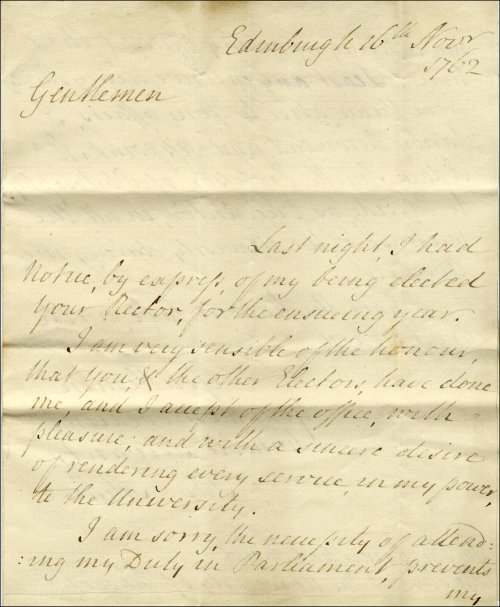 Edinburgh 16th Novr
1762
Gentlemen
Last night, I had
Notice, by express, of my being elected
your Rector, for the ensueing year.
I am very sensible of the honour,
that you, & the other Electors, have done
me, and I accept of the office, with
pleasure; and with a sincere desire
of rendering every service, in my power,
to the University.
I am sorry, the necessity of attend:
:ing my Duty in Parliament, prevents
my